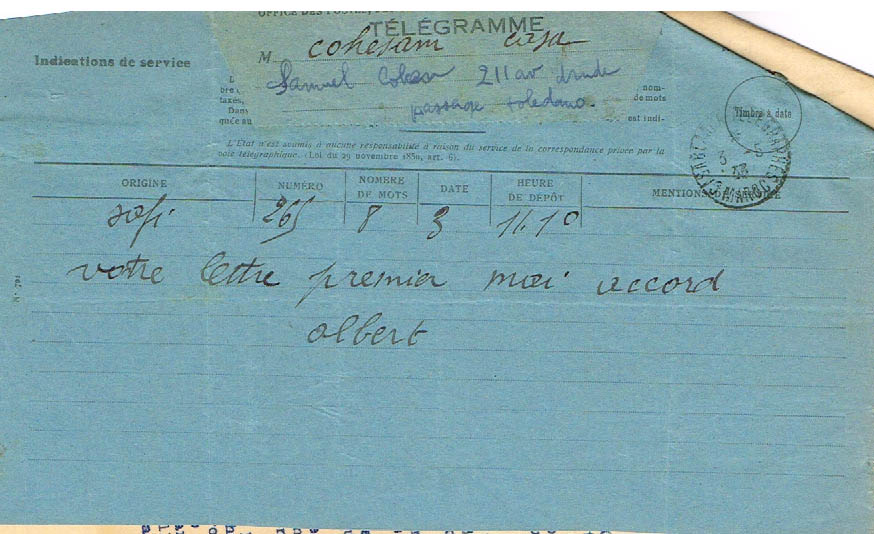 OFFICE DES POSTES,
TÉLÉGRAMME
M cohesam casa
Indications de service
Samuel Cohen 211 av drude
passage toledano.
L
bre
taxés,
Dans
quée au
nom-
de mots
est indi-
Timbre à date
L'État n'est soumis à aucune responsabilité à raison du service de la correspondance privée par la
voie télégraphique. (Loi du 29 novembre 1850, art. 6).
ORIGINE NUMÉRO NOMBRE DE MOTS DATE HEURE DE DÉPÔT MENTIONS
safi 265 8 3 11.10
votre lettre premier mai accord
albert
MAROC